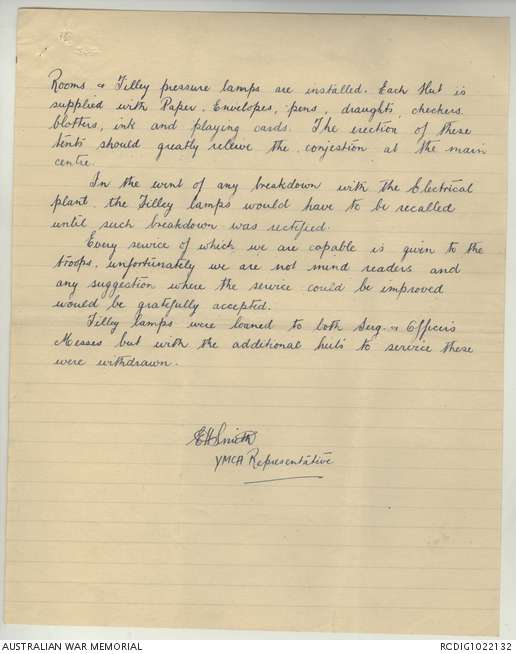 Rooms & Tilley pressure lamps are installed. Each Hut is
supplied with Paper, Envelopes, pens, draughts, checkers
blotters, ink and playing cards. The erection of these
tents should greatly relieve the conjestion at the main
centre.
In the event of any breakdown with the Electrical
plant the Tilley lamps would have to be recalled
until such breakdown was rectified.
Every service of which we are capable is given to the
troops, unfortunately we are not mind readers and
any suggestion where the service could be improved
would be gratefully accepted.
Tilley lamps were loaned to both Serg. & Officers
Messes but with the additional huts to service these
were withdrawn.
EH Smith
YMCA Representative
AUSTRALIAN WAR MEMORIAL
RCDIG1022132